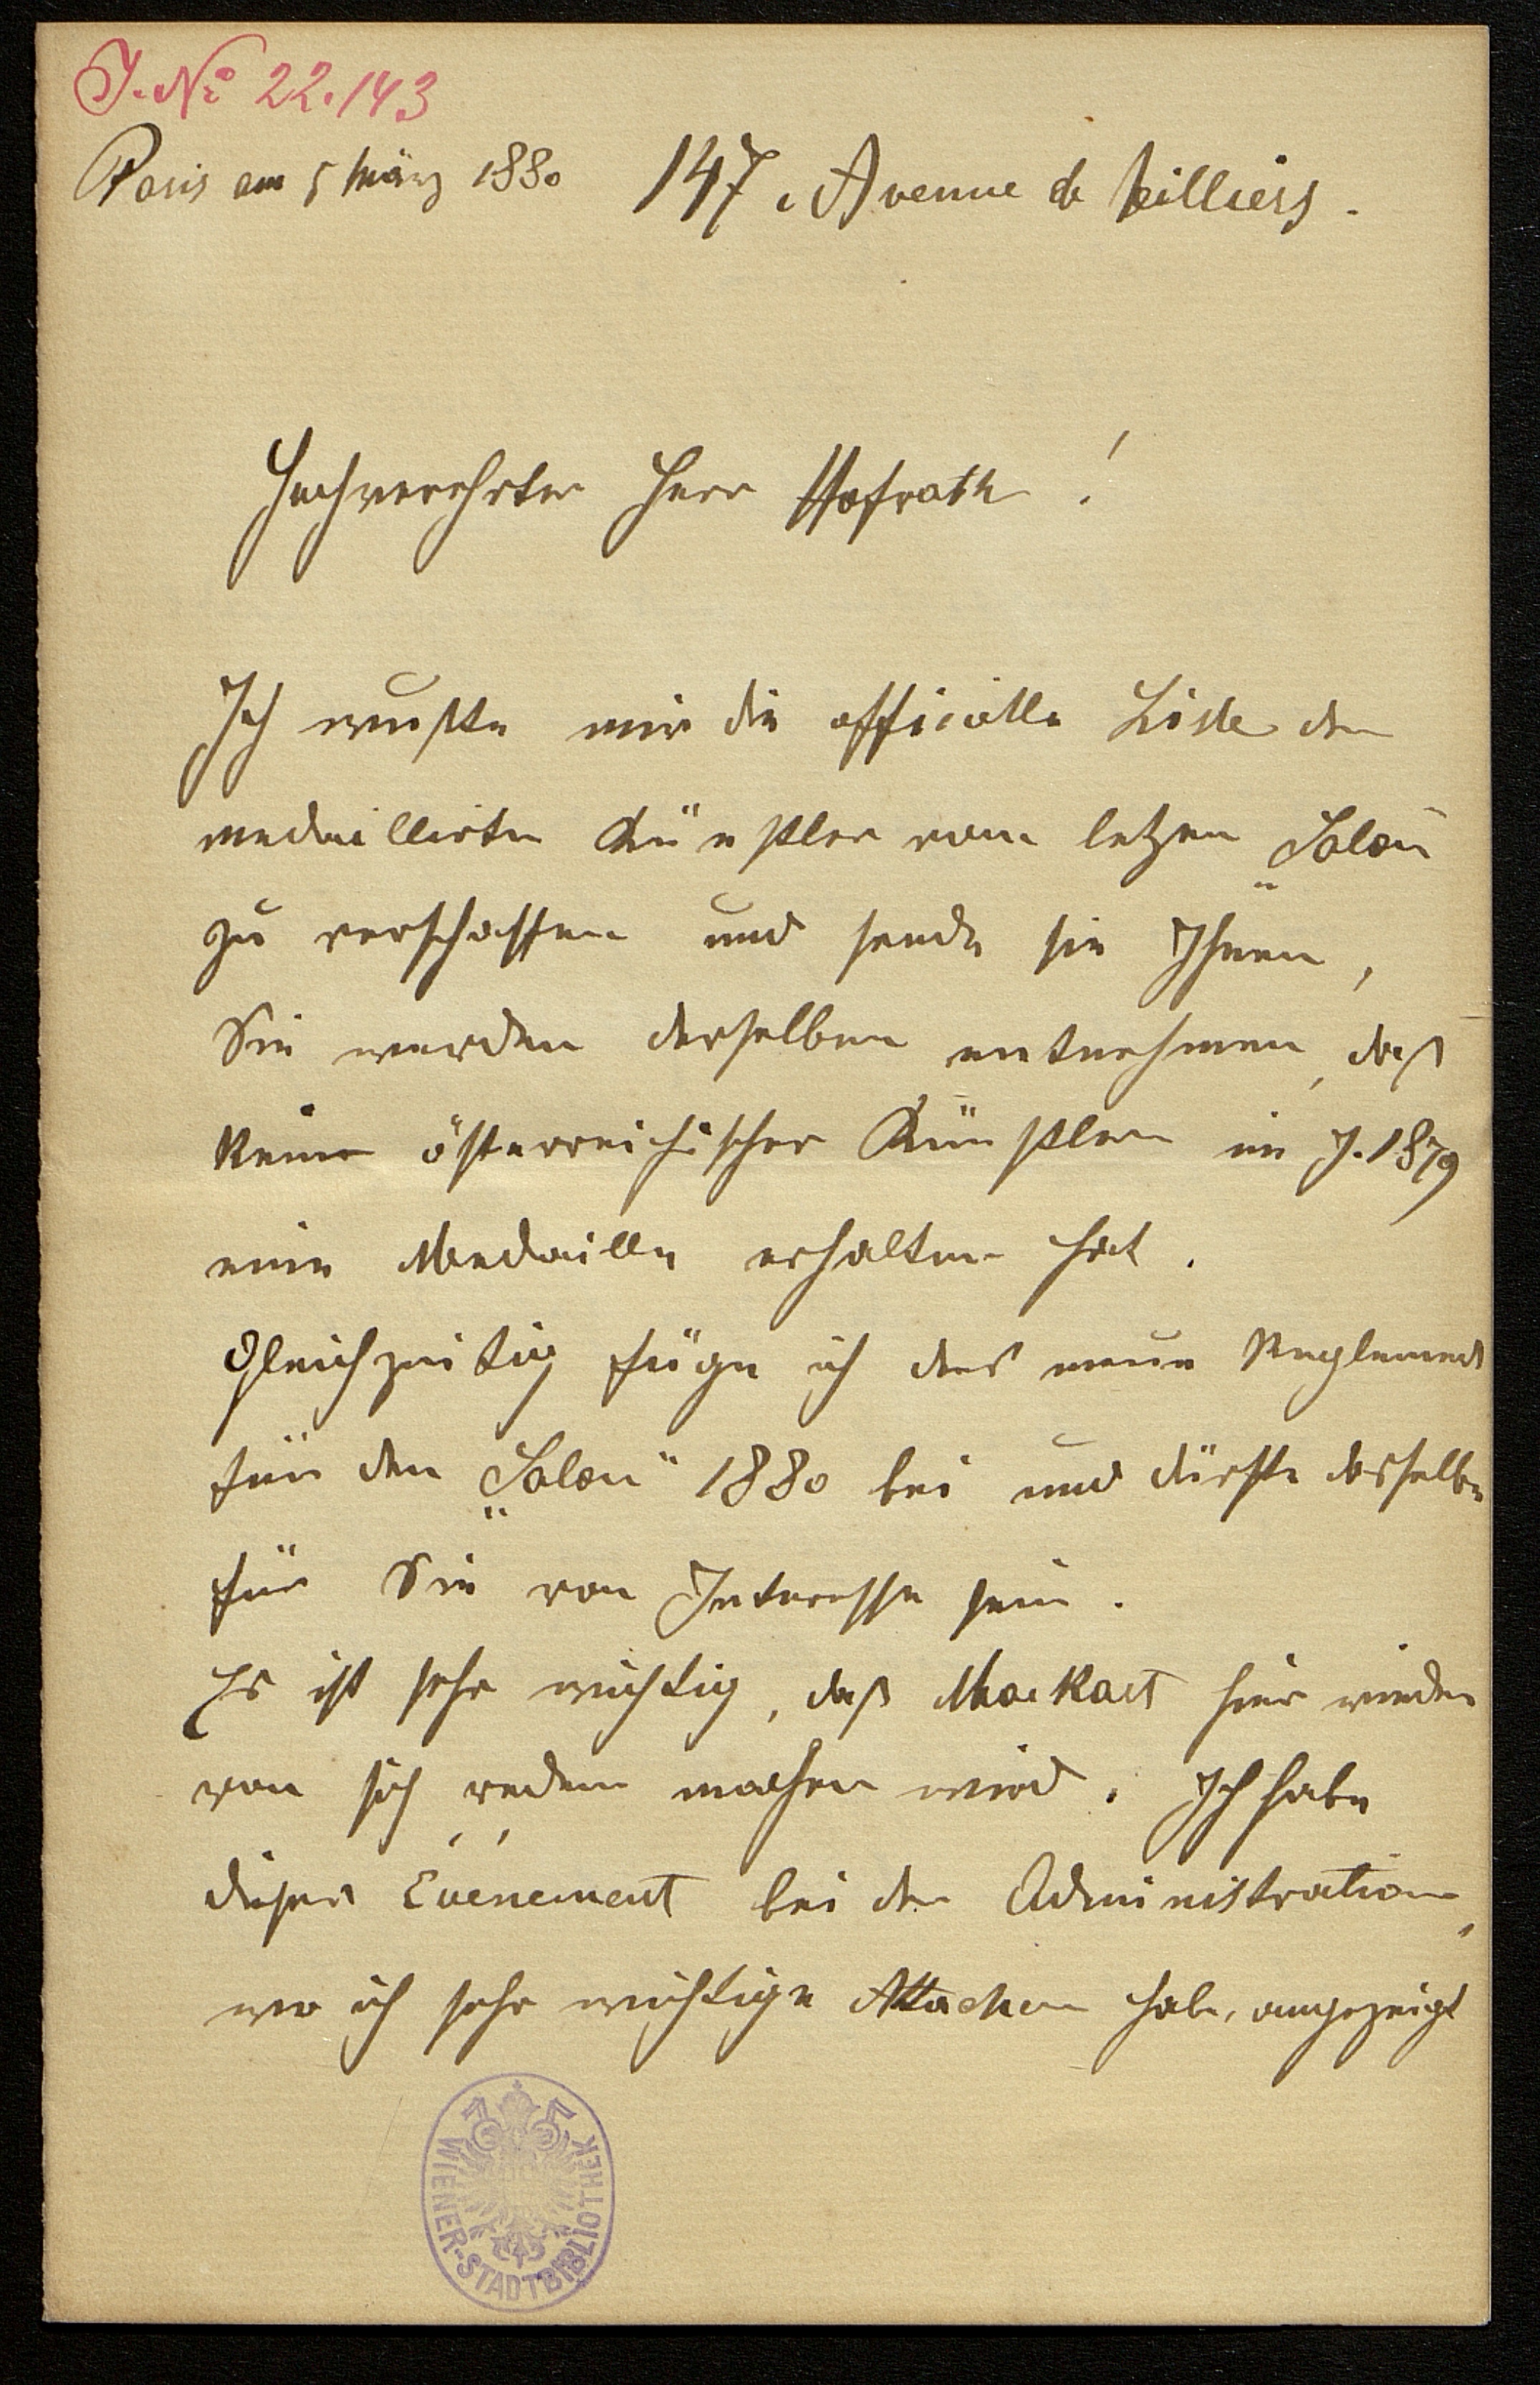 J. No 22.143
Paris am 5 März 1880 147, Avenue de Villiers.
Hochverehrter Herr Hofrath!
Ich wußte mir die officielle Liste der
medaillirten Künstler vom letzen „Salon“
zu verschaffen und sende sie Ihnen,
Sie werden derselben entnehmen, daß
keiner österreichischer Künstler im J. 1879
eine Medaille erhalten hat.
Gleichzeitig füge ich das neue Reglement
für den „Salon“ 1880 bei und dürfte dasselbe
für Sie von Interesse sein.
Es ist sehr wichtig, daß Mackart hier wieder
von sich reden machen wird. Ich habe
dieses Événement bei der Administration,
wo ich sehr wichtige Attachen habe, angezeigt
WIENER-STADTBIBLIOTHEK